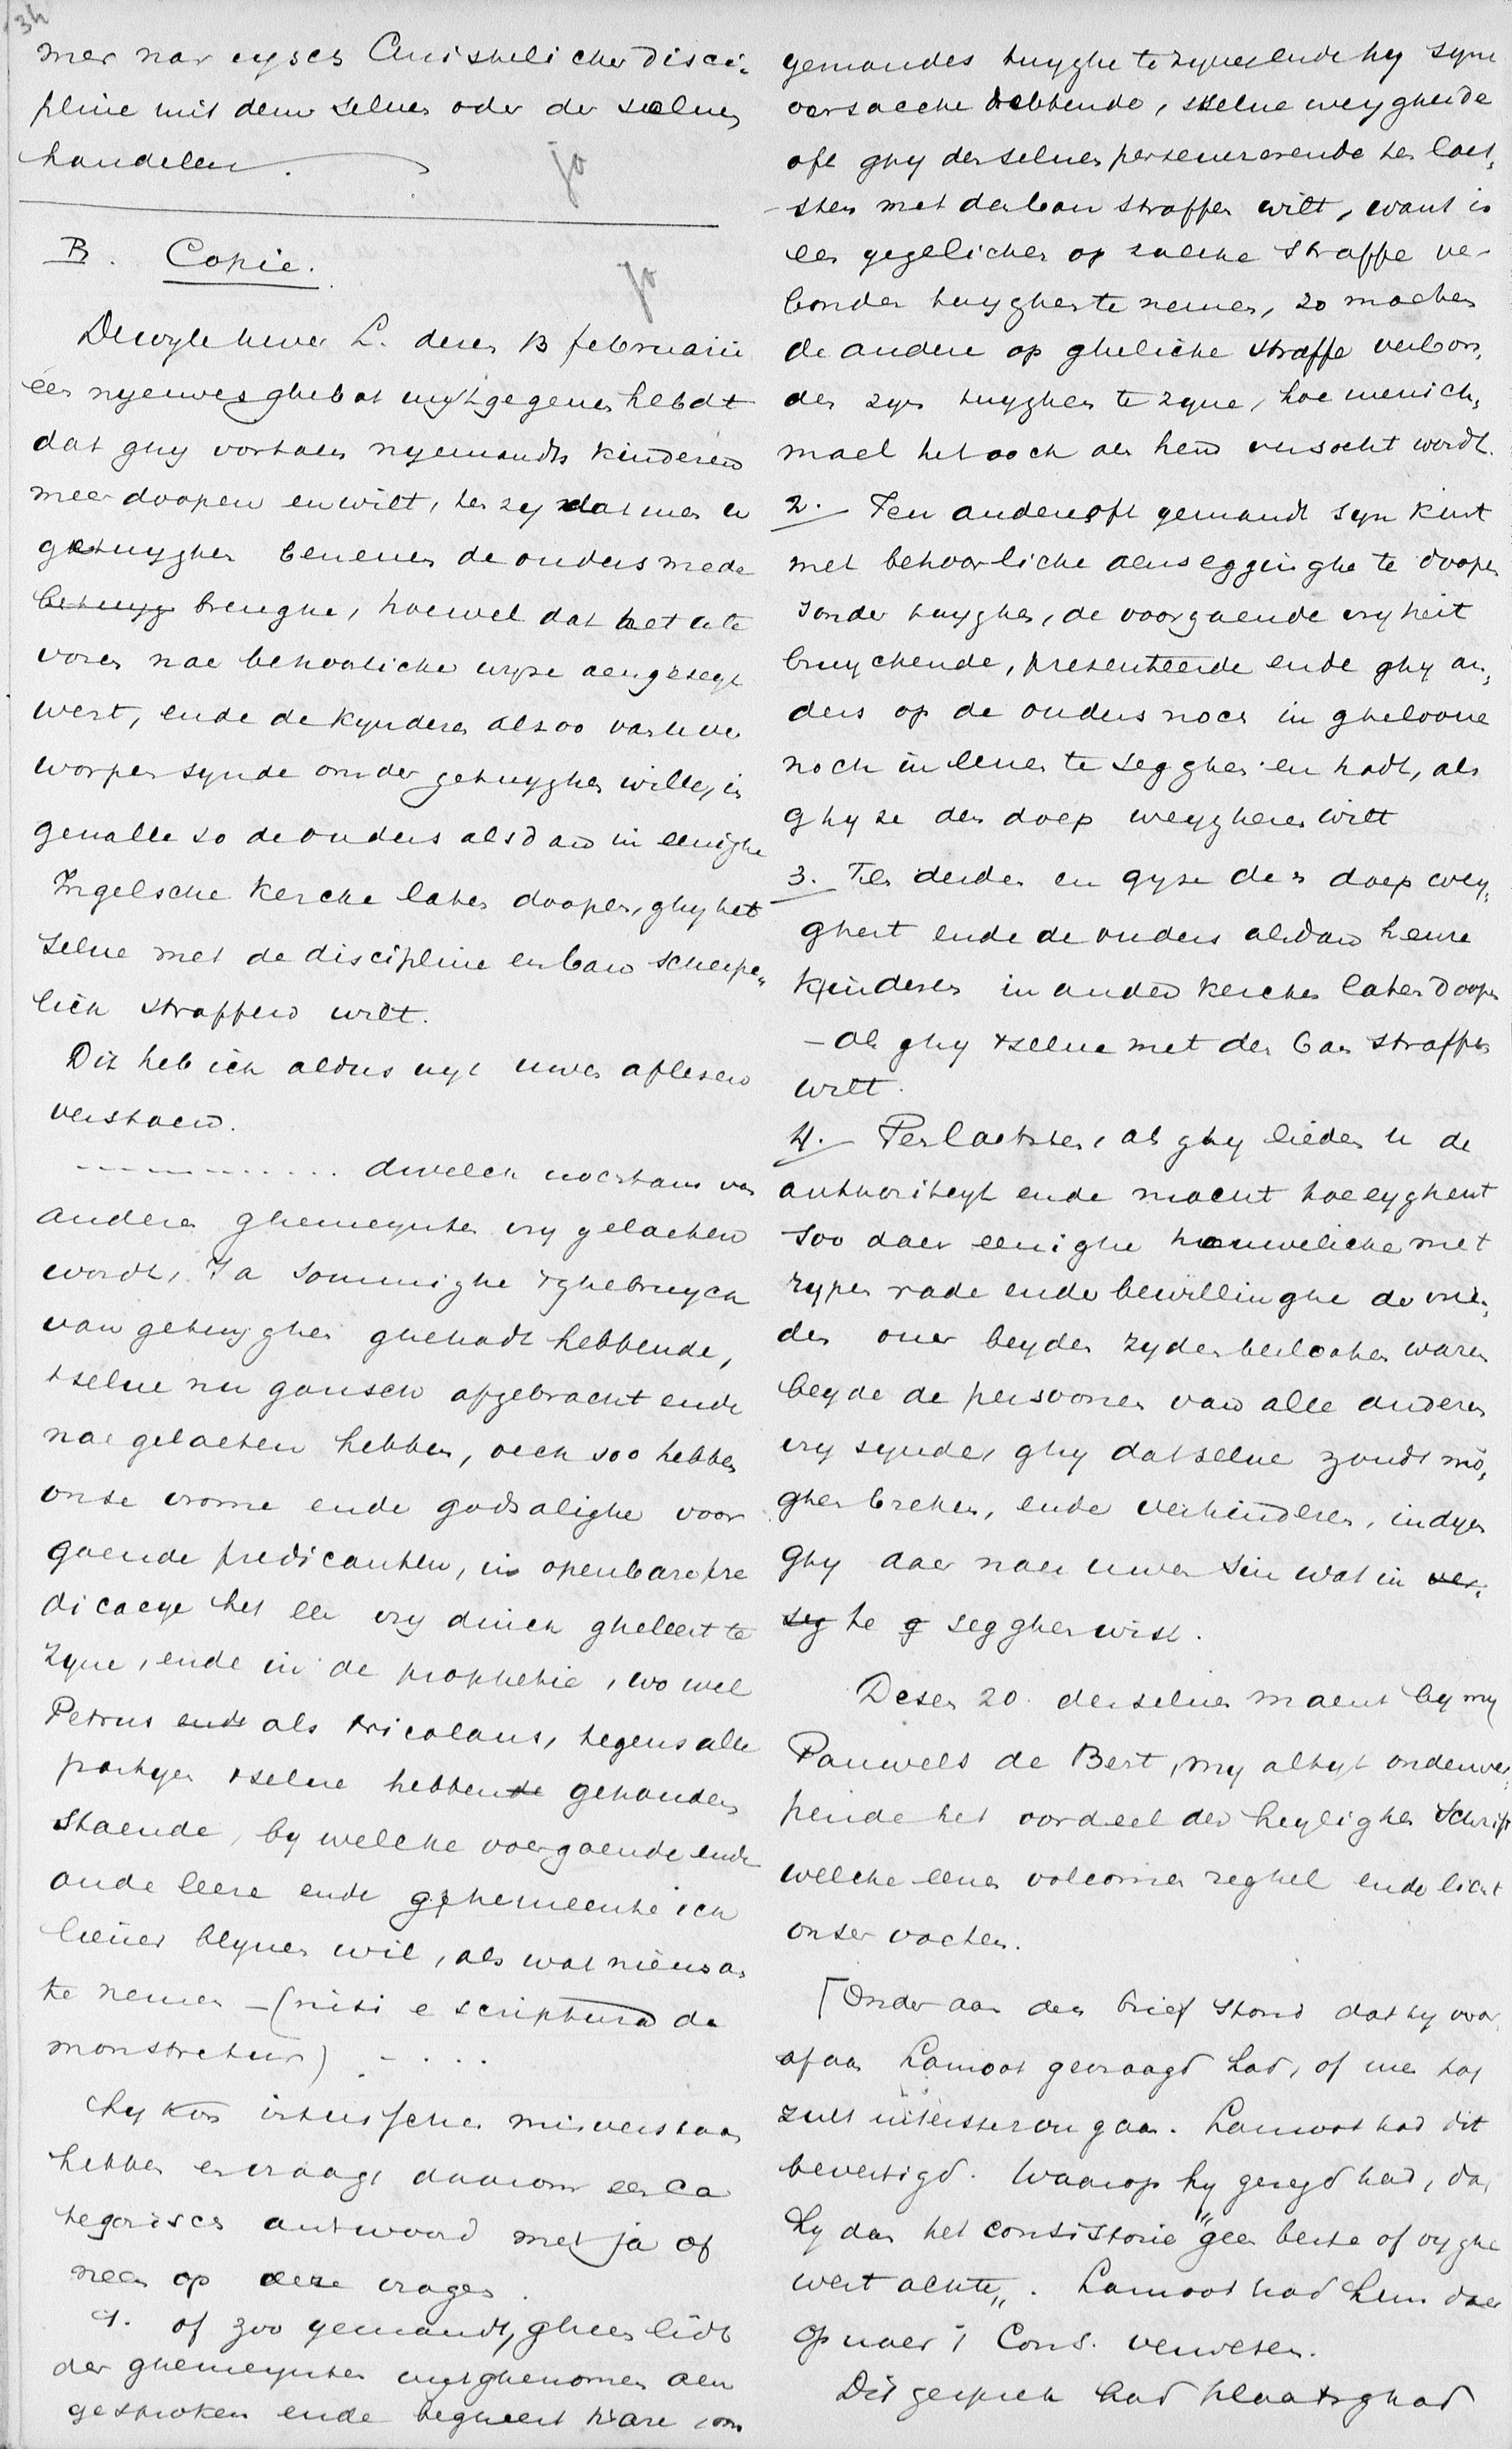 34
men nar eysch Christelicher disci-
pline mit dem selven oder der selven
handelen.
jo
B. Copie.
jo
Dewyle uwer L. denen 13 februarii
een nyeuwes ghebot uytgegeven hebdt
dat ghy vortaen nyemandts kinderen
meer doopen en wilt, ten zy dat men er
getuyghen benevens de ouders mede
betuyg brenghe, hoewel dat het te
voren nae behoorlicke wyse aengesegt
wert, ende de kynderen alsoo van uwe
worpen synde om der getuyghen wille, in
gevalle so de ouders alsdan in eenighe
Ingelsche kercke laten doopen, ghy het
selve met de discipline en ban scherpe-
lick straffen wilt.
Dit heb ick aldus uyt uwer aflesen
verstaen.
............ dwelck nochtans van
anderen ghemeynten vry gelaeten
wordt, Ja sommighe tghebruyck
van getuyghen ghehadt hebbende,
tselve nu gansch afgebracht ende
nae gelaeten hebben, oock soo hebben
onse vrome ende godsalighe voor
gaende predicanten, in openbare pre
dicacye het een vry dinck gheleert te
zyne, ende in de prophetie, so wel
Petrus ende als Nicolaus, tegens alle
partyen tselve hebbende gehouden
staende, by welcke voergaende ende
oude leere ende ghemeente ick
liever blyven wil, als wat nieus an
te nemen - (nisi e scriptura de
monstretur) - ...
Hy kon intusschen misverstaan
hebben en vraagt daarom een ca
tegorisch antwoord met ja of
neen op deze vragen.
1. of zoo yemandt, gheen lidt
der ghemeynten uytghenomen aen
gesproken ende begheert ware om
yemandes tuyghe te zyne, ende hy syne
oorsaecke hebbende, tselve weygherde
oft ghy derselven persevererende ten laet-
sten met den ban straffen wilt, want is
een yegelicken op sulcke straffe ve-
bonden tuyghen te nemen, zo moeten
de andere op ghelicke straffe verbon-
den zyn tuyghen te zyne, hoe menich-
mael het oock aen hem versocht wordt.
2. Ten anderen oft yemandt syn kint
met behoorlicke aensegginghe te doopen
sonder tuyghen, de voorgaende vryheit
bruyckende, presenteerde ende ghy an-
ders op de ouders noch in gheloove
noch in leven te segghen en hadt, als
ghy ze den doep weygheren wilt
3. Ten derden en gyse den doep wey-
ghert ende de ouders alsdan heure
kinderen in ander kercken laten doopen
- Oft ghy tselve met den ban straffen
wilt.
4. Ten laetsten, als ghy lieden u de
authoriteyt ende macht toeeyghent
soo daer eenighe houwelicke met
rypen rade ende bewillinghe der ou-
ders over beyden zyden besloten waren
beyde de persoonen van alle anderen
vry synde, ghy datselve zoudt mo-
ghen breken, ende verhinderen, indyen
ghy daer naer uwen sin wat in ver-
seg te g segghen wist.
Desen 20. derselven maent by my
Pauwels de Bert, my altyt onderwer-
pende het oordeel der heylighen Schrift
welcke eenen volcomen reghel ende licht
onser voeten.
[Onder aan den brief stond dat hy voor
af aan Lamoot gevraagd had, of men tot
zulk uitersten zou gaan. Lamoot had dit
bevestigd. Waarop hy gezegd had, dat
hy dan het consistorie "geen berte of vyghe
wert achte". Lamoot had hem daar
op naer 't Cons. verwesen.
Dit gesprek had plaats gehad